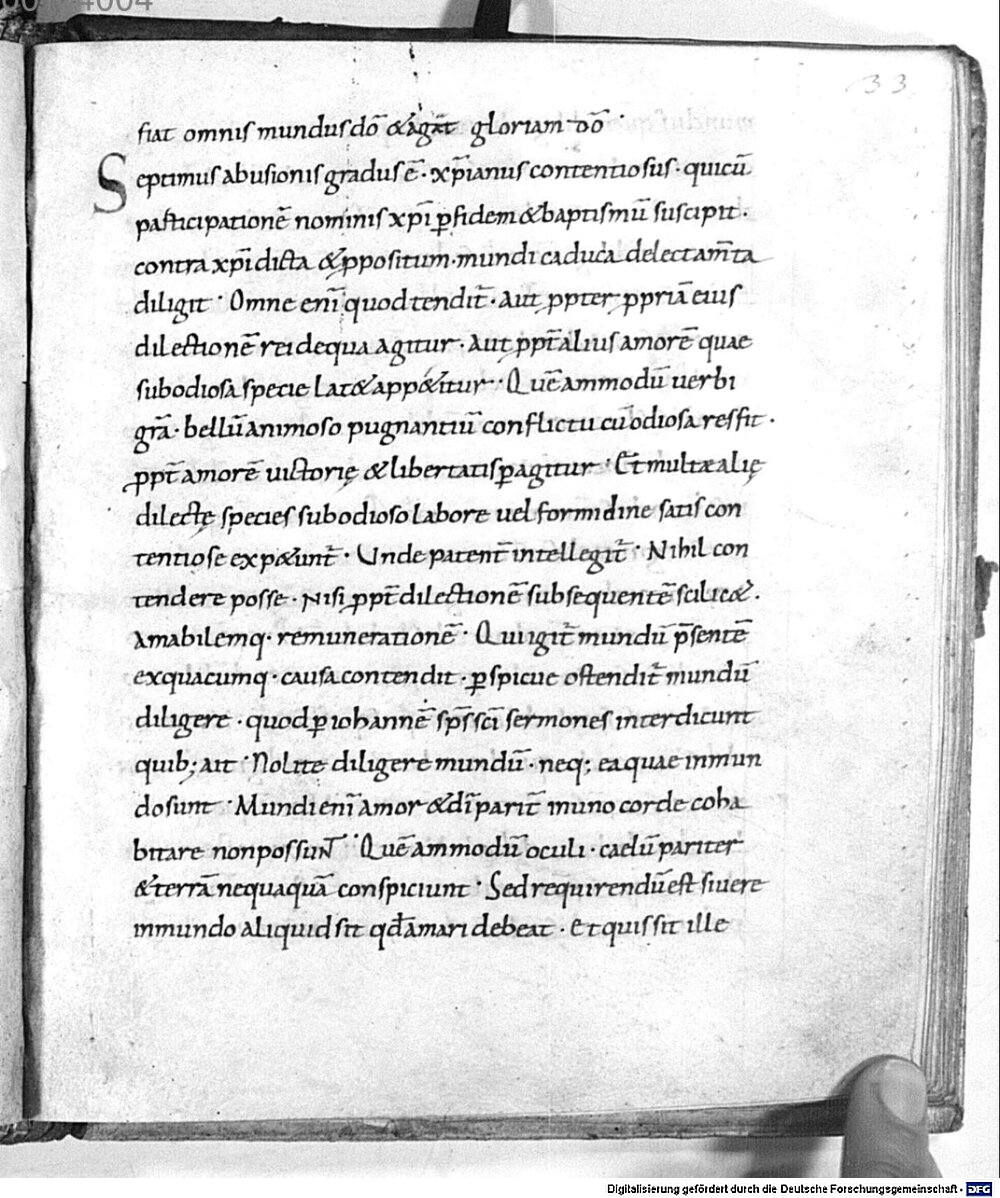 33
fiat omnis mundus dō & agat gloriam dō ·
Septimus abusionis gradus ē · xp̄ianus contentiosus · quicū
participationē nominis xp̄i ꝑ fidem & baptismū suscipit ·
contra xp̄i dicta & ꝓpositum · mundi caduca delectam̄ta
diligit · Omne enī quod tendit̄ · Aut ꝓpter ꝓpriā eius
dilectionē rei de qua agitur · Aut ꝓpt̄ alius amorē quae
sub odiosa specie lat& app&itur · Quēammodū uerbi
grā · bellū animoso pugnantiū conflictu cū odiosa res sit ·
ꝓpt̄ amorē uictorię & libertatis ꝑagitur · Et multæ alię
dilectę species sub odioso labore uel formidine satis con
tentiose exp&unt̄ · Unde patent̄ intellegit̄ · Nihil con
tendere posse · Nisi ꝓpt̄ dilectionē subsequentē scilic& ·
Amabilemq· remunerationē · Qui igit̄ mundū p̄sentē
ex quacumq· causa contendit · ꝑspicue ostendit̄ mundū
diligere · quod ꝑ iohannē sp̄s sc̄i sermones interdicunt
quib; ait · Nolite diligere mundū · neq; ea quae in mun
do sunt · Mundi enī amor & dī parit̄ in uno corde coha
bitare non possunt · Quēammodū oculi · caelū pariter
& terrā nequaquā conspiciunt · Sed requirendū est si uere
in mundo aliquid sit qd̄ amari debeat · et quis sit ille
Digitalisierung gefördert durch die Deutsche Forschungsgemeinschaft - DFG